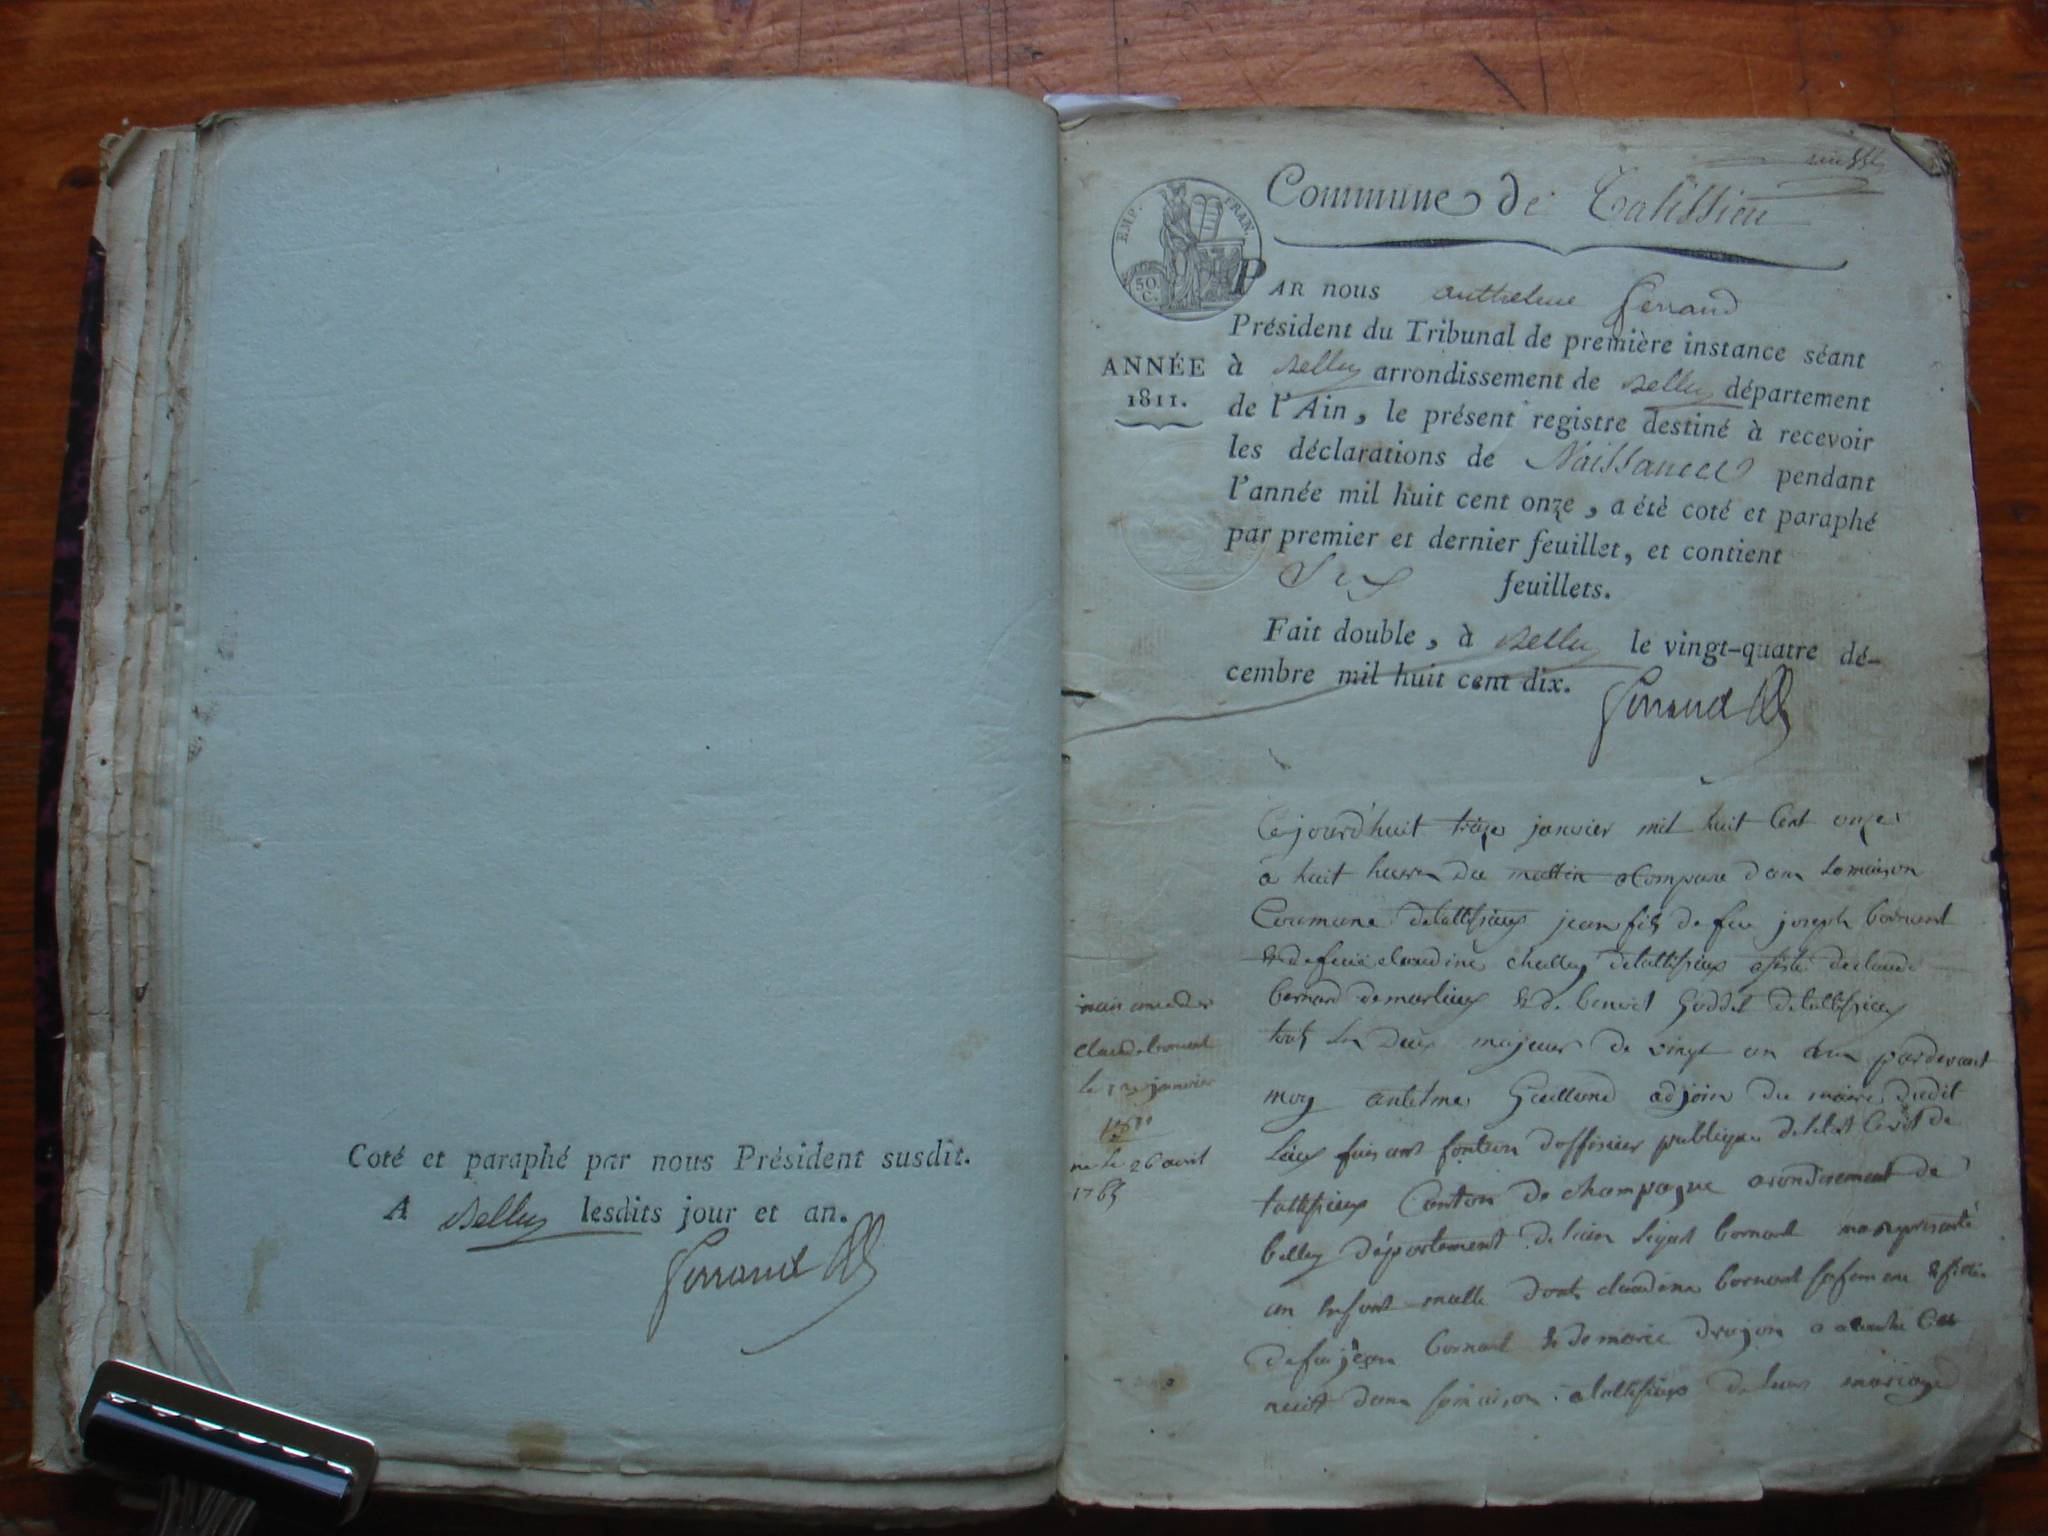 Coté et paraphé par nous Président susdit.
A Belley lesdits jour et an.
Ferrand
Commune de Talissieu
EMP. FRAN.
50 C.
PAR nous anthelme Ferrand
Président du Tribunal de première instance séant
ANNÉE
1811.
à Belley arrondissement de Belley département
de l'Ain, le présent registre destiné à recevoir
les déclarations de Naissances pendant
l'année mil huit cent onze, a été coté et paraphé
par premier et dernier feuillet, et contient
Six feuillets.
Fait double, à Belley le vingt-quatre dé-
cembre mil huit cent dix.
Ferrand
Cejourd'huit treize janvier mil huit Cent onze
a huit heures du mattin a Compare dans lamaison
Coumune detallisieux jean fils de feu joseph bornant
& defeue claudine chelley detallisieux asisté declaude
bernard demarlieux & de benoit Goddet detallisieux
touts les deux majeur de vingt un ans pardevant
moy antelme Guilland adjoin du maire dudit
Lieux faisant fontion doffisier publique deletat Civit de
tallisieux Canton de champagne arondisement de
belley département de lain leqat bornant ma representé
un enfant malle dont claudine bornant safemme & fillie
defeu jean bornant & demarie drojon a acouché Cete
nuit dans samaison atallisieux de leur mariage
claude bornant
le 13 janvier
né le 26 avril
1785